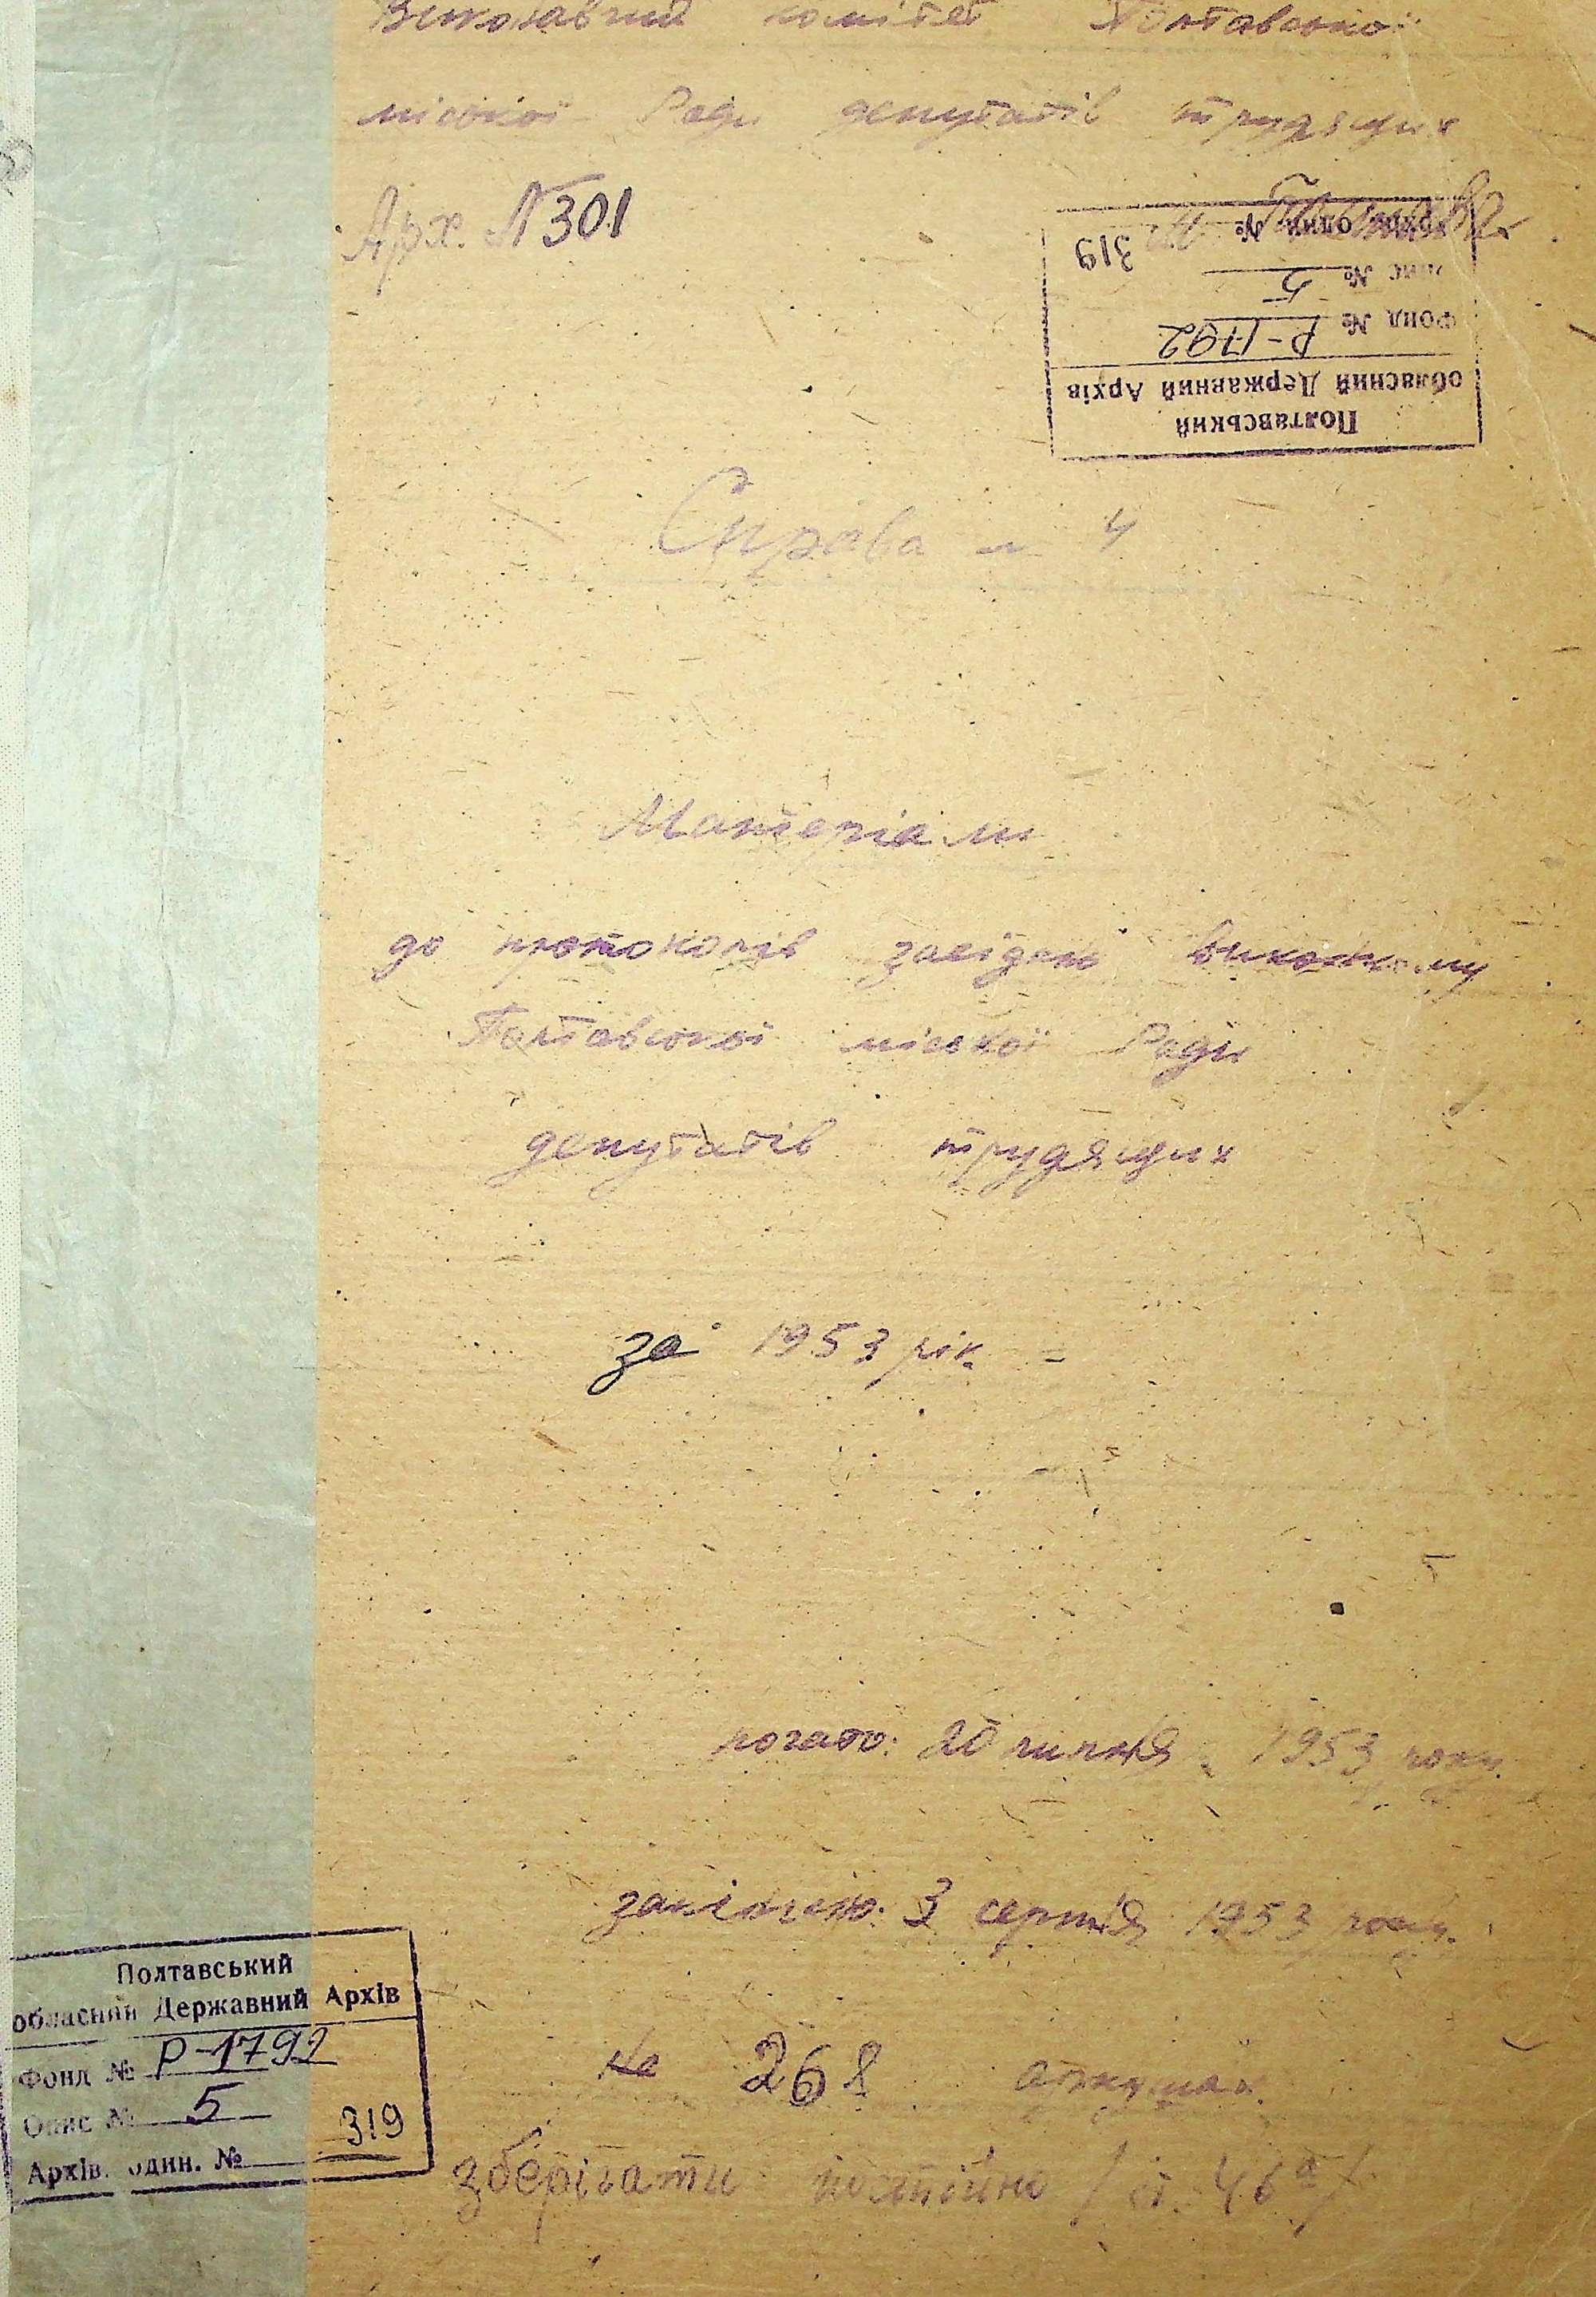 Виконавчий комітет Полтавської
міської Ради депутатів трудящих
Арх. №301
Полтавський
обласний Державний Архів
Фонд № Р-1792
Опис № 5
Архів. один. № 319
Справа № 4
Матеріали
до протоколів засідань виконкому
Полтавської міської Ради
депутатів трудящих
за 1953 рік
почато: 20 липня 1953 року.
закінчено: 3 серпня 1953 року.
На 268 аркушах
зберігати постійно / ст. 46а/
Полтавський
обласний Державний Архів
Фонд № Р-1792
Опис № 5
Архів. один. № 319